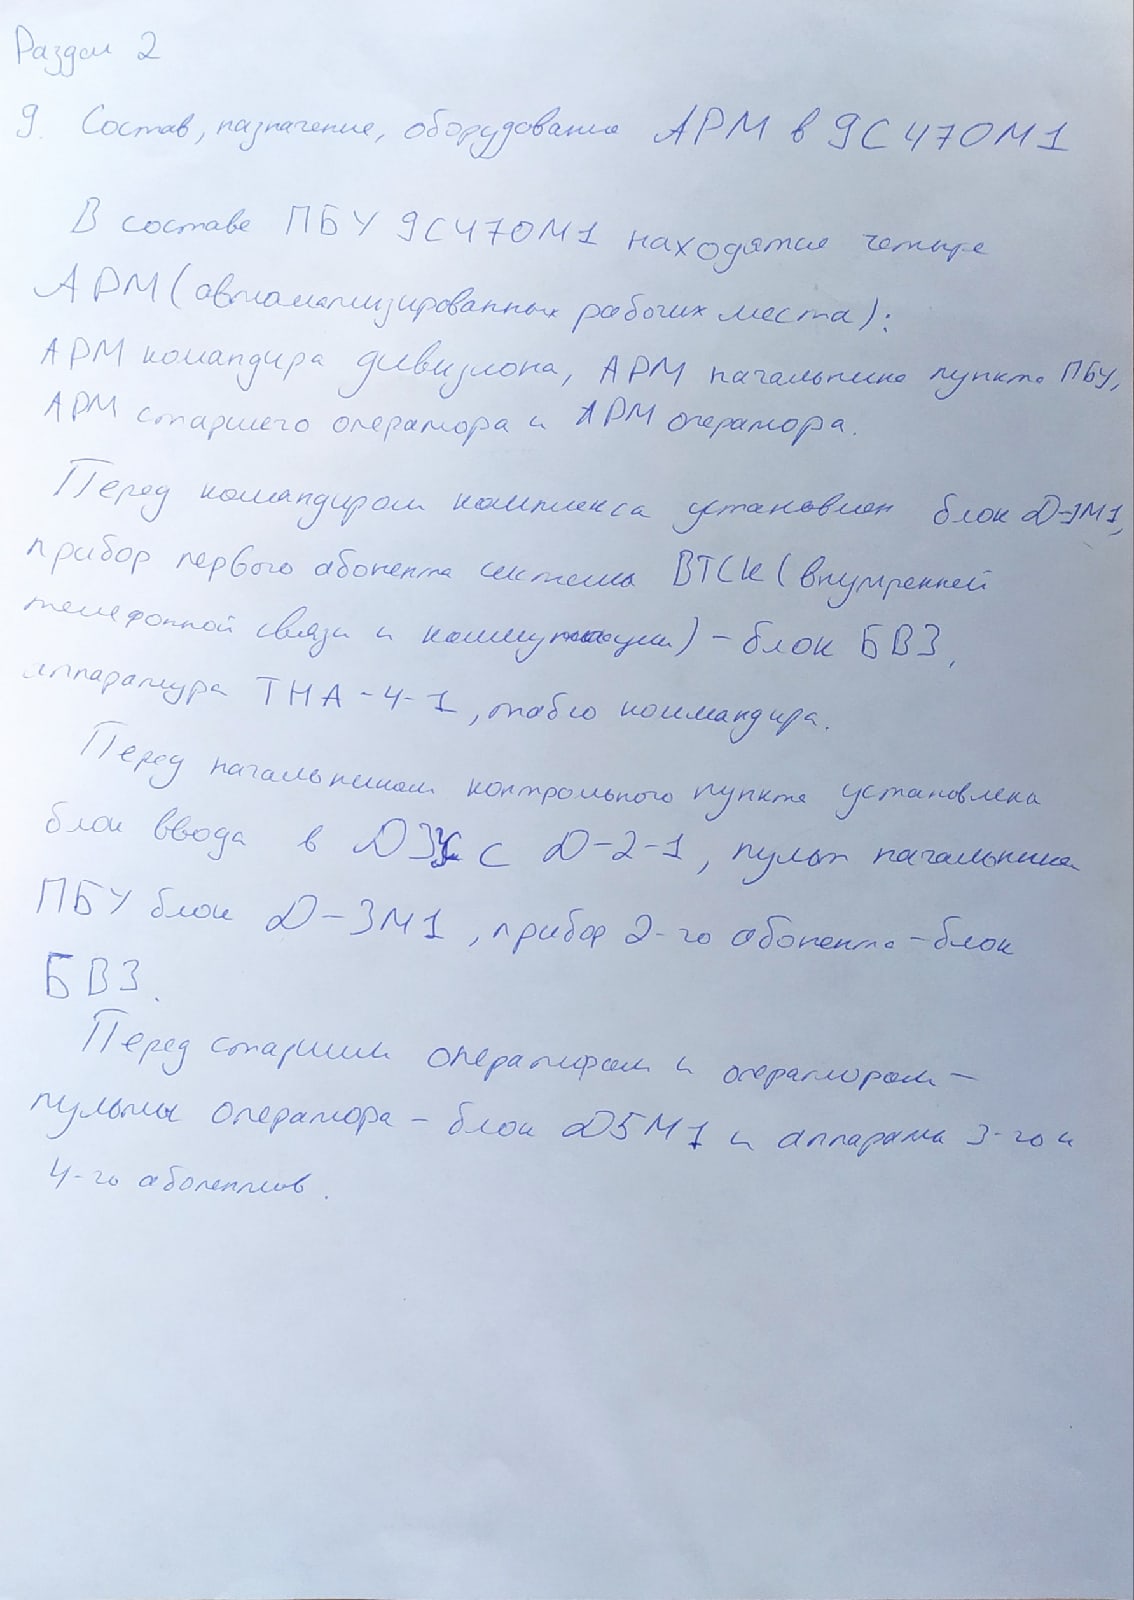 Раздел 2
9. Состав, назначение, оборудование АРМ в 9С470М1
В составе ПБУ 9С470М1 находятся четыре
АРМ (автоматизированных рабочих места):
АРМ командира дивизиона, АРМ начальника пункта ПБУ,
АРМ старшего оператора и АРМ оператора.
Перед командиром комплекса установлен блок Д-3М1,
прибор первого абонента системы ВТСК (внутренней
телефонной связи и коммутации) - блок БВЗ,
аппаратура ТНА-4-1, табло командира.
Перед начальником контрольного пункта установлена
блок ввода в с Д-2-1, пульт начальника
ПБУ блок Д-3М1, прибор 2-го абонента - блок
БВЗ.
Перед старшим оператором и оператором -
пульты оператора - блок Д5М1 и аппараты 3-го и
4-го абонентов.